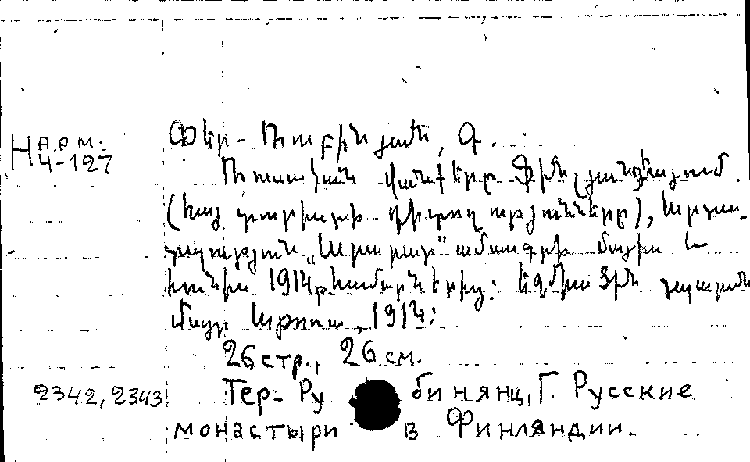 Н арм.
4-127
Տեր-Ռուբինյանց, Գ.
Ռուսական վանքերը Ֆինլյանդիայում
(հայ կիտողությունները), Արտա-
տպություն „Արարատ“ ամսագրի մայիս և
հունիս 1914թ համարներից: Էջմիածին
մայր Աթոռ, 1914:
26 стр., 26 см.
2342, 2343 Тер-Рубинянц, Г. Русские
монастыри в Финляндии.